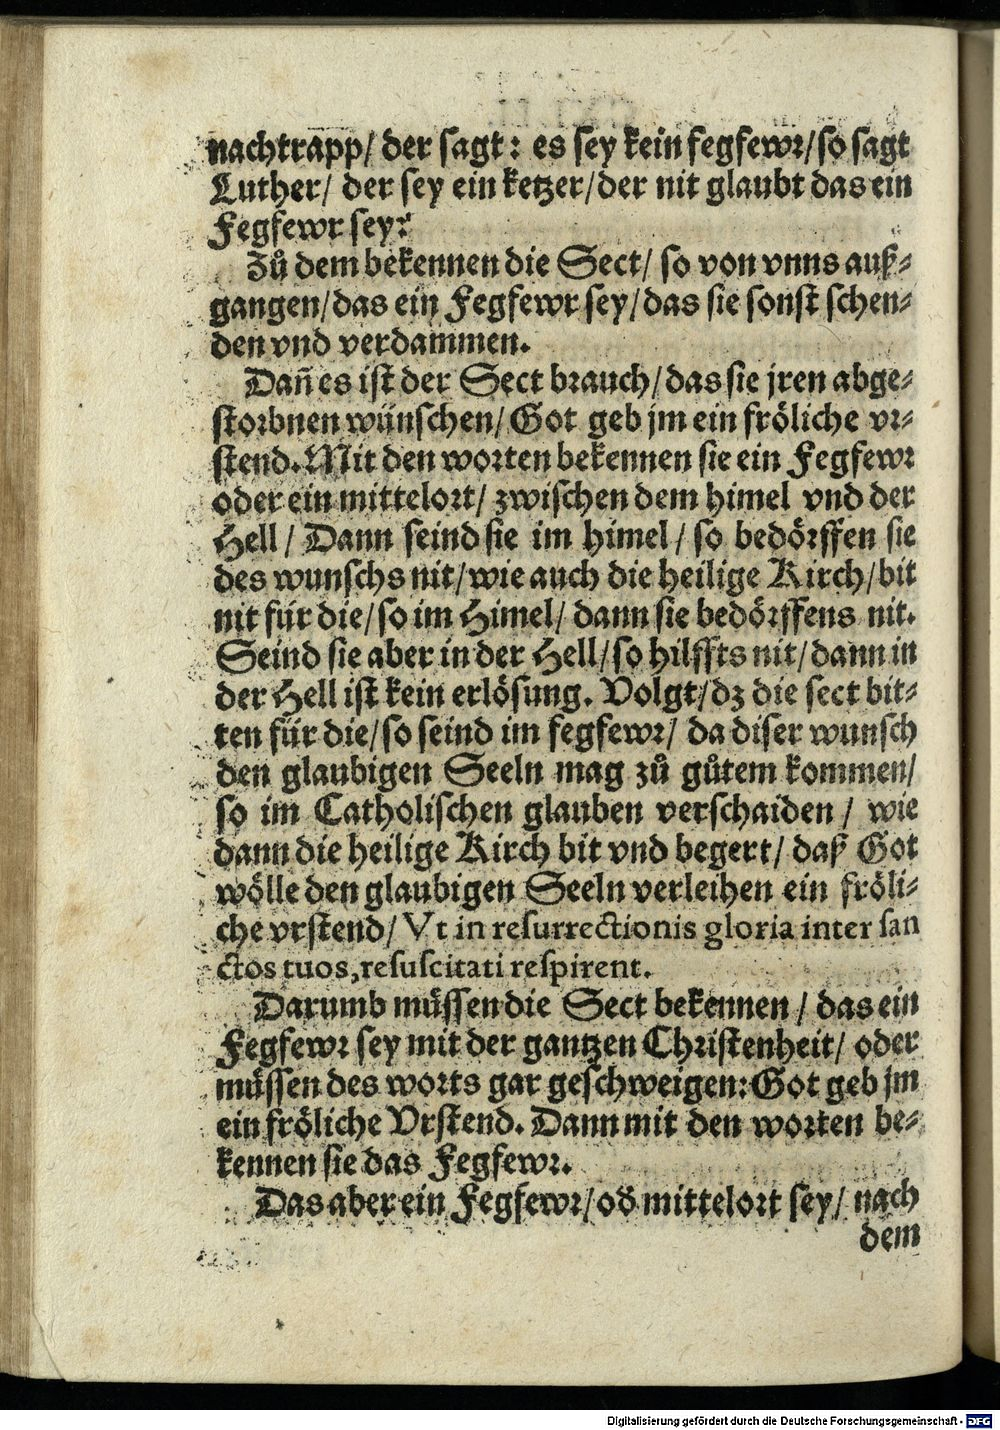 nachtrapp/ der sagt: es sey kein fegfewr/so sagt
Luther/ der sey ein ketzer/der nit glaubt das ein
Fegfewr sey?
Zů dem bekennen die Sect/ so von vnns auß-
gangen/das ein Fegfewr sey/das sie sonst schen-
den vnd verdammen.
Dañ es ist der Sect brauch/das sie jren abge-
storbnen wünschen/Got geb jm ein fröliche vr-
stend. Mit den worten bekennen sie ein Fegfewr
oder ein mittelort/ zwischen dem himel vnd der
Hell/ Dann seind sie im himel/ so bedörffen sie
des wunschs nit/wie auch die heilige Kirch/bit
nit für die/so im Himel/ dann sie bedörffens nit.
Seind sie aber in der Hell/so hilffts nit/dann in
der Hell ist kein erlösung. Volgt/dz die sect bit-
ten für die/so seind im fegfewr/ da diser wunsch
den glaubigen Seeln mag zů gůtem kommen/
so im Catholischen glauben verschaiden/ wie
dann die heilige Kirch bit vnd begert/ daß Got
wölle den glaubigen Seeln verleihen ein fröli-
che vrstend/ Vt in resurrectionis gloria inter san
ctos tuos, resuscitati respirent.
Darumb müssen die Sect bekennen/ das ein
Fegfewr sey mit der gantzen Christenheit/ oder
müssen des worts gar geschweigen: Got geb jm
ein fröliche Vrstend. Dann mit den worten be-
kennen sie das Fegfewr.
Das aber ein Fegfewr/od̄ mittelort sey/ nach
dem
Digitalisierung gefördert durch die Deutsche Forschungsgemeinschaft - DFG